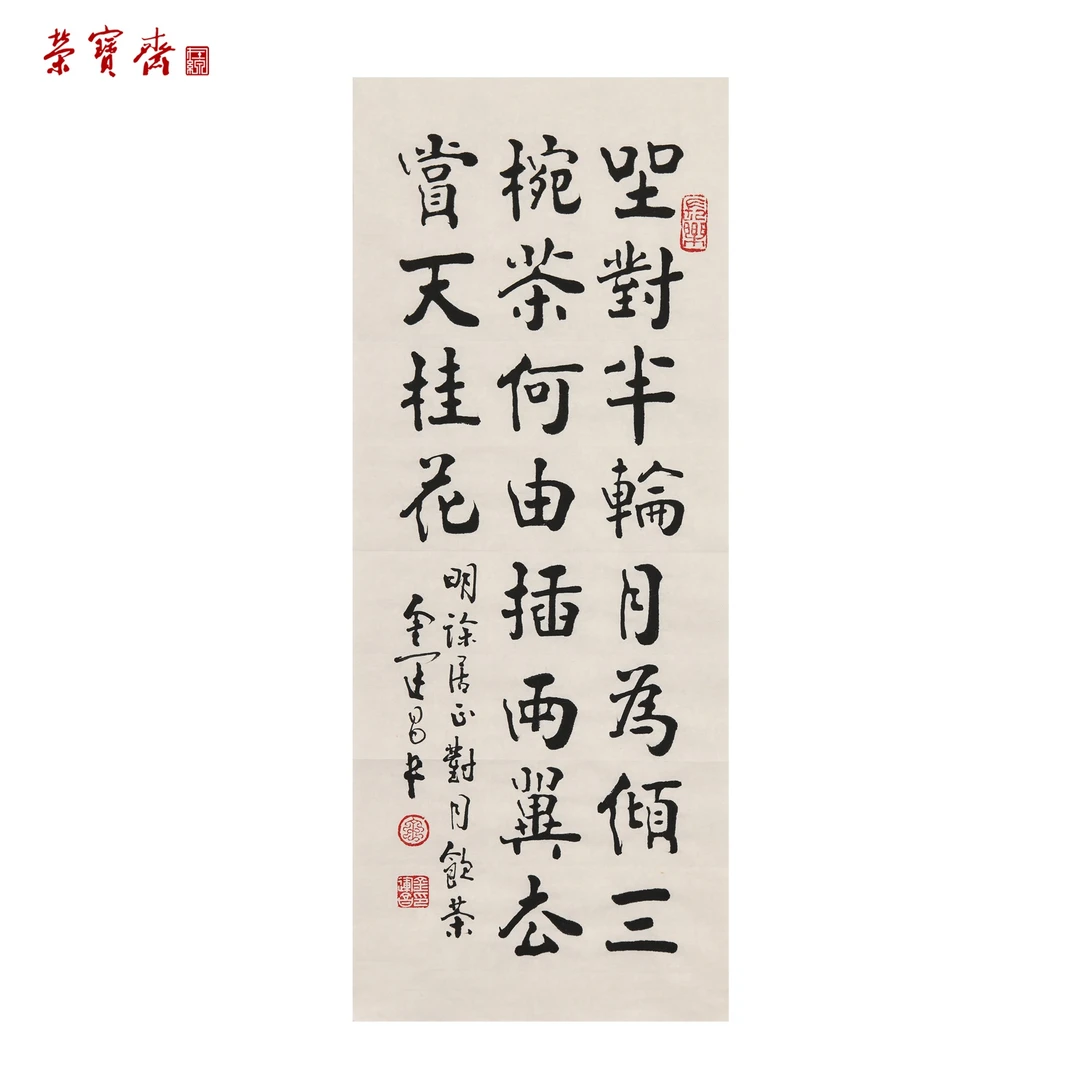 榮寶齋
坐對半輪月為傾三
椀茶何由插兩翼去
賞天桂花
明徐居正對月飲茶
金運昌書